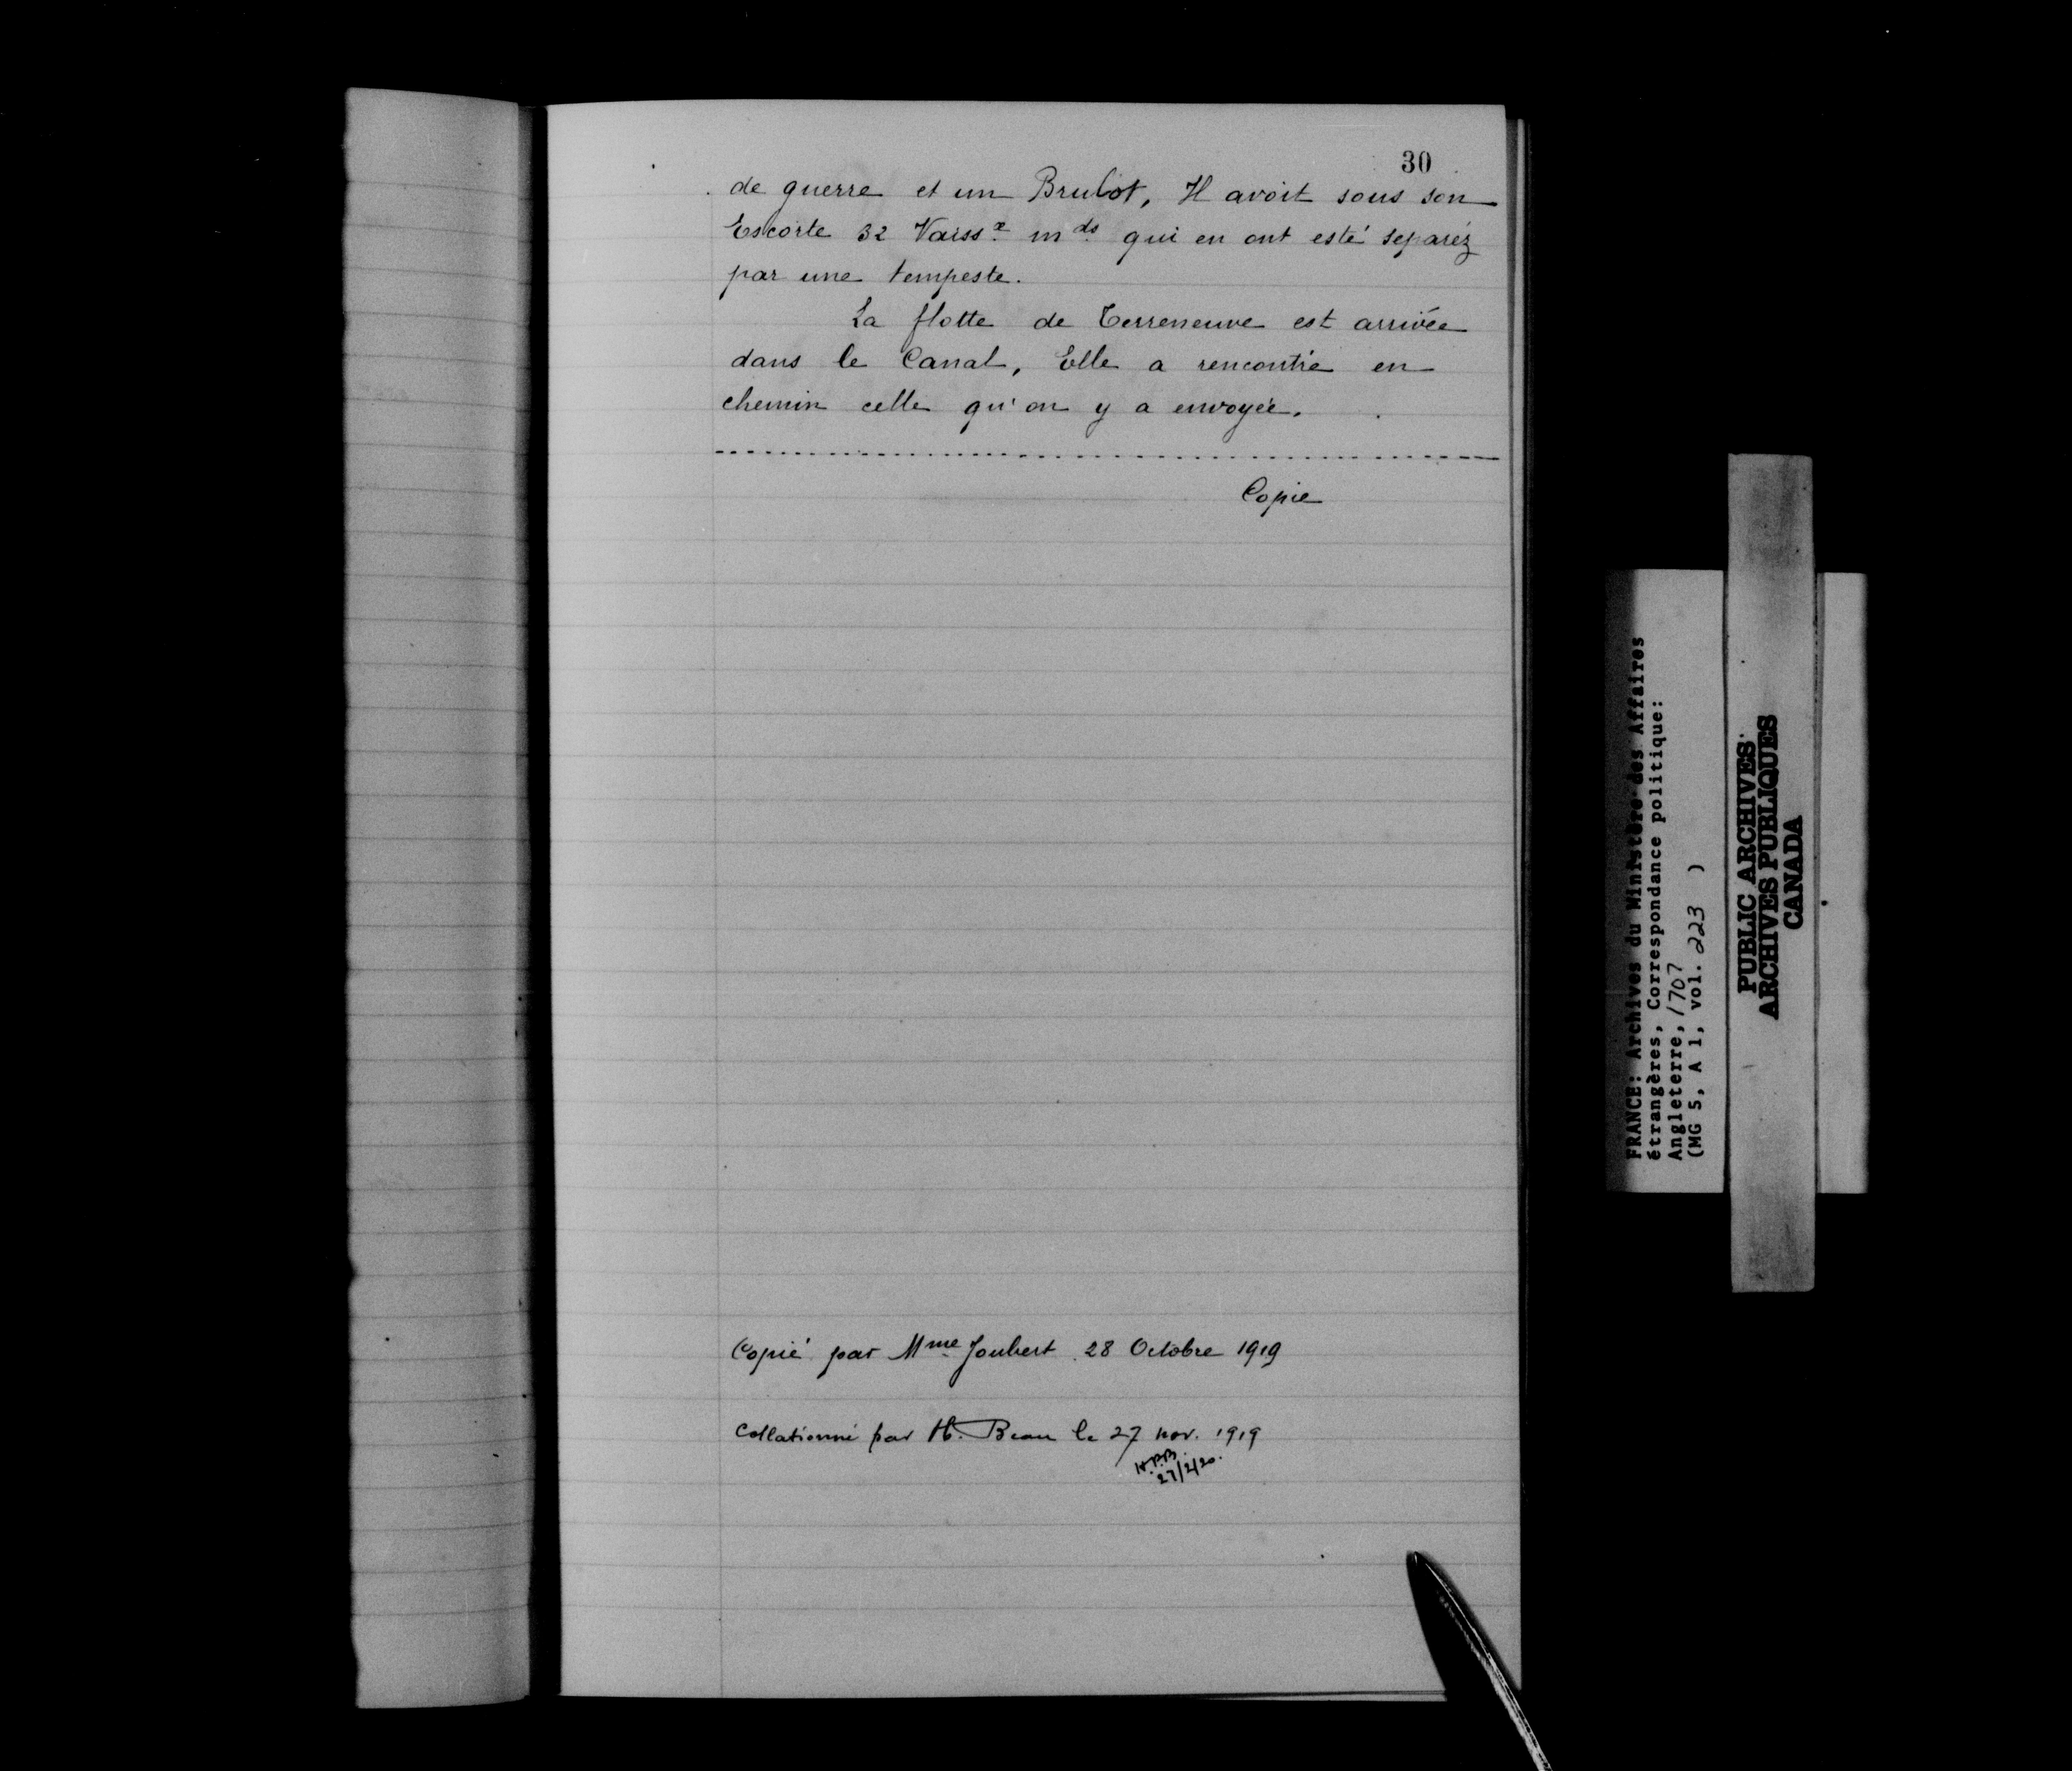 30
de guerre et un Brulot, Il avoit sous son
Escorte 32 Vaiss.x m.ds qui en ont esté separéz
par une tempeste.
La flotte de Terreneuve est arrivée
dans le Canal, Elle a rencontré en
chemin celle qu'on y a envoyée.
Copie
Copié par Mme Joubert 28 Octobre 1919
Collationné par H. Beau le 27 nov. 1919
H.P.B.
27/2/20.
FRANCE: Archives du Ministère des Affaires
étrangères, Correspondance politique:
Angleterre, 1707
(MG 5, A 1, vol. 223 )
PUBLIC ARCHIVES
ARCHIVES PUBLIQUES
CANADA